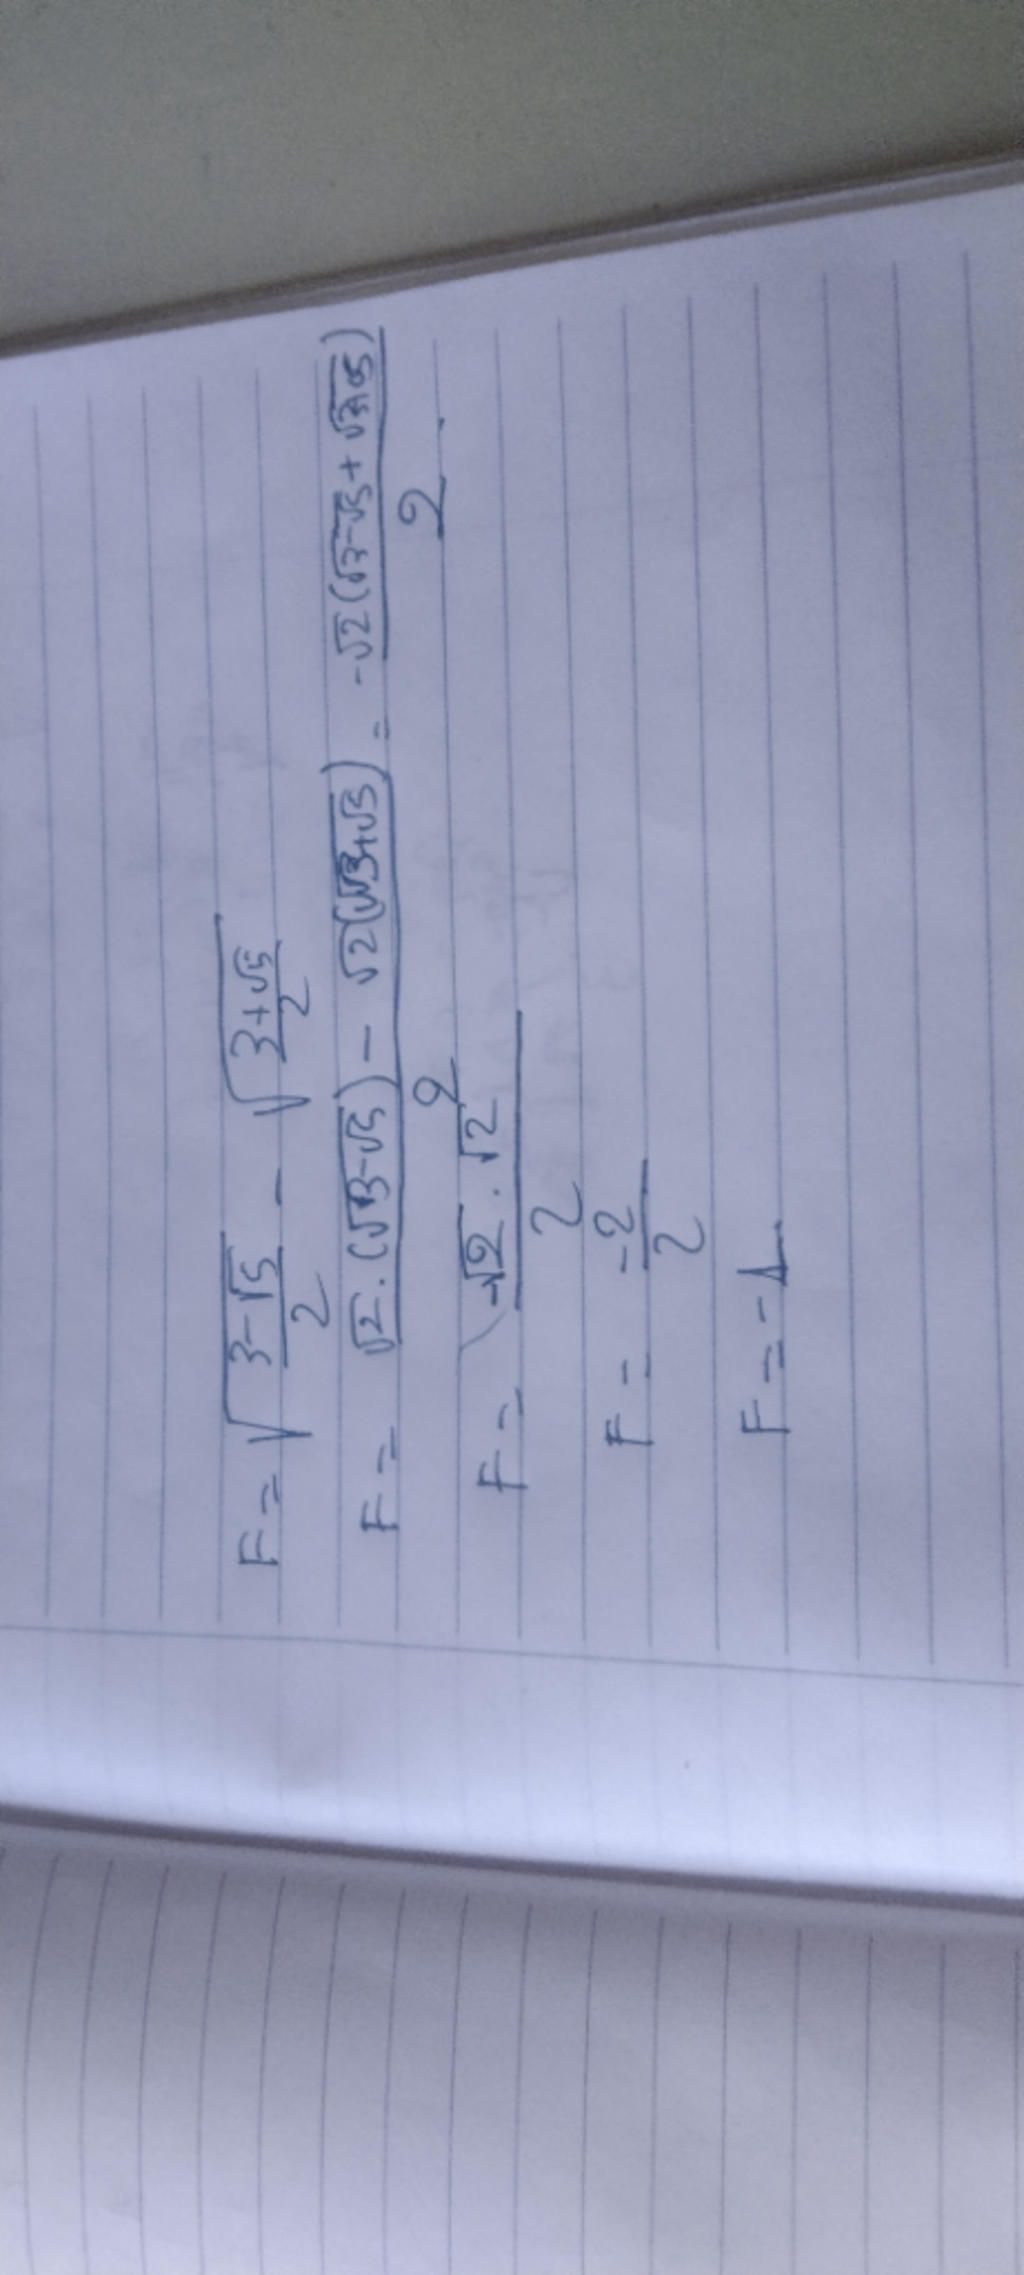 F = √(3-√5)/2 - √(3+√5)/2
F = √2.(√3-√5) - √2(√3+√5) / 2 = -√2(√3-√5 + √3+√5) / 2
F = -√2 . √2 / 2
F = -2 / 2
F = -1